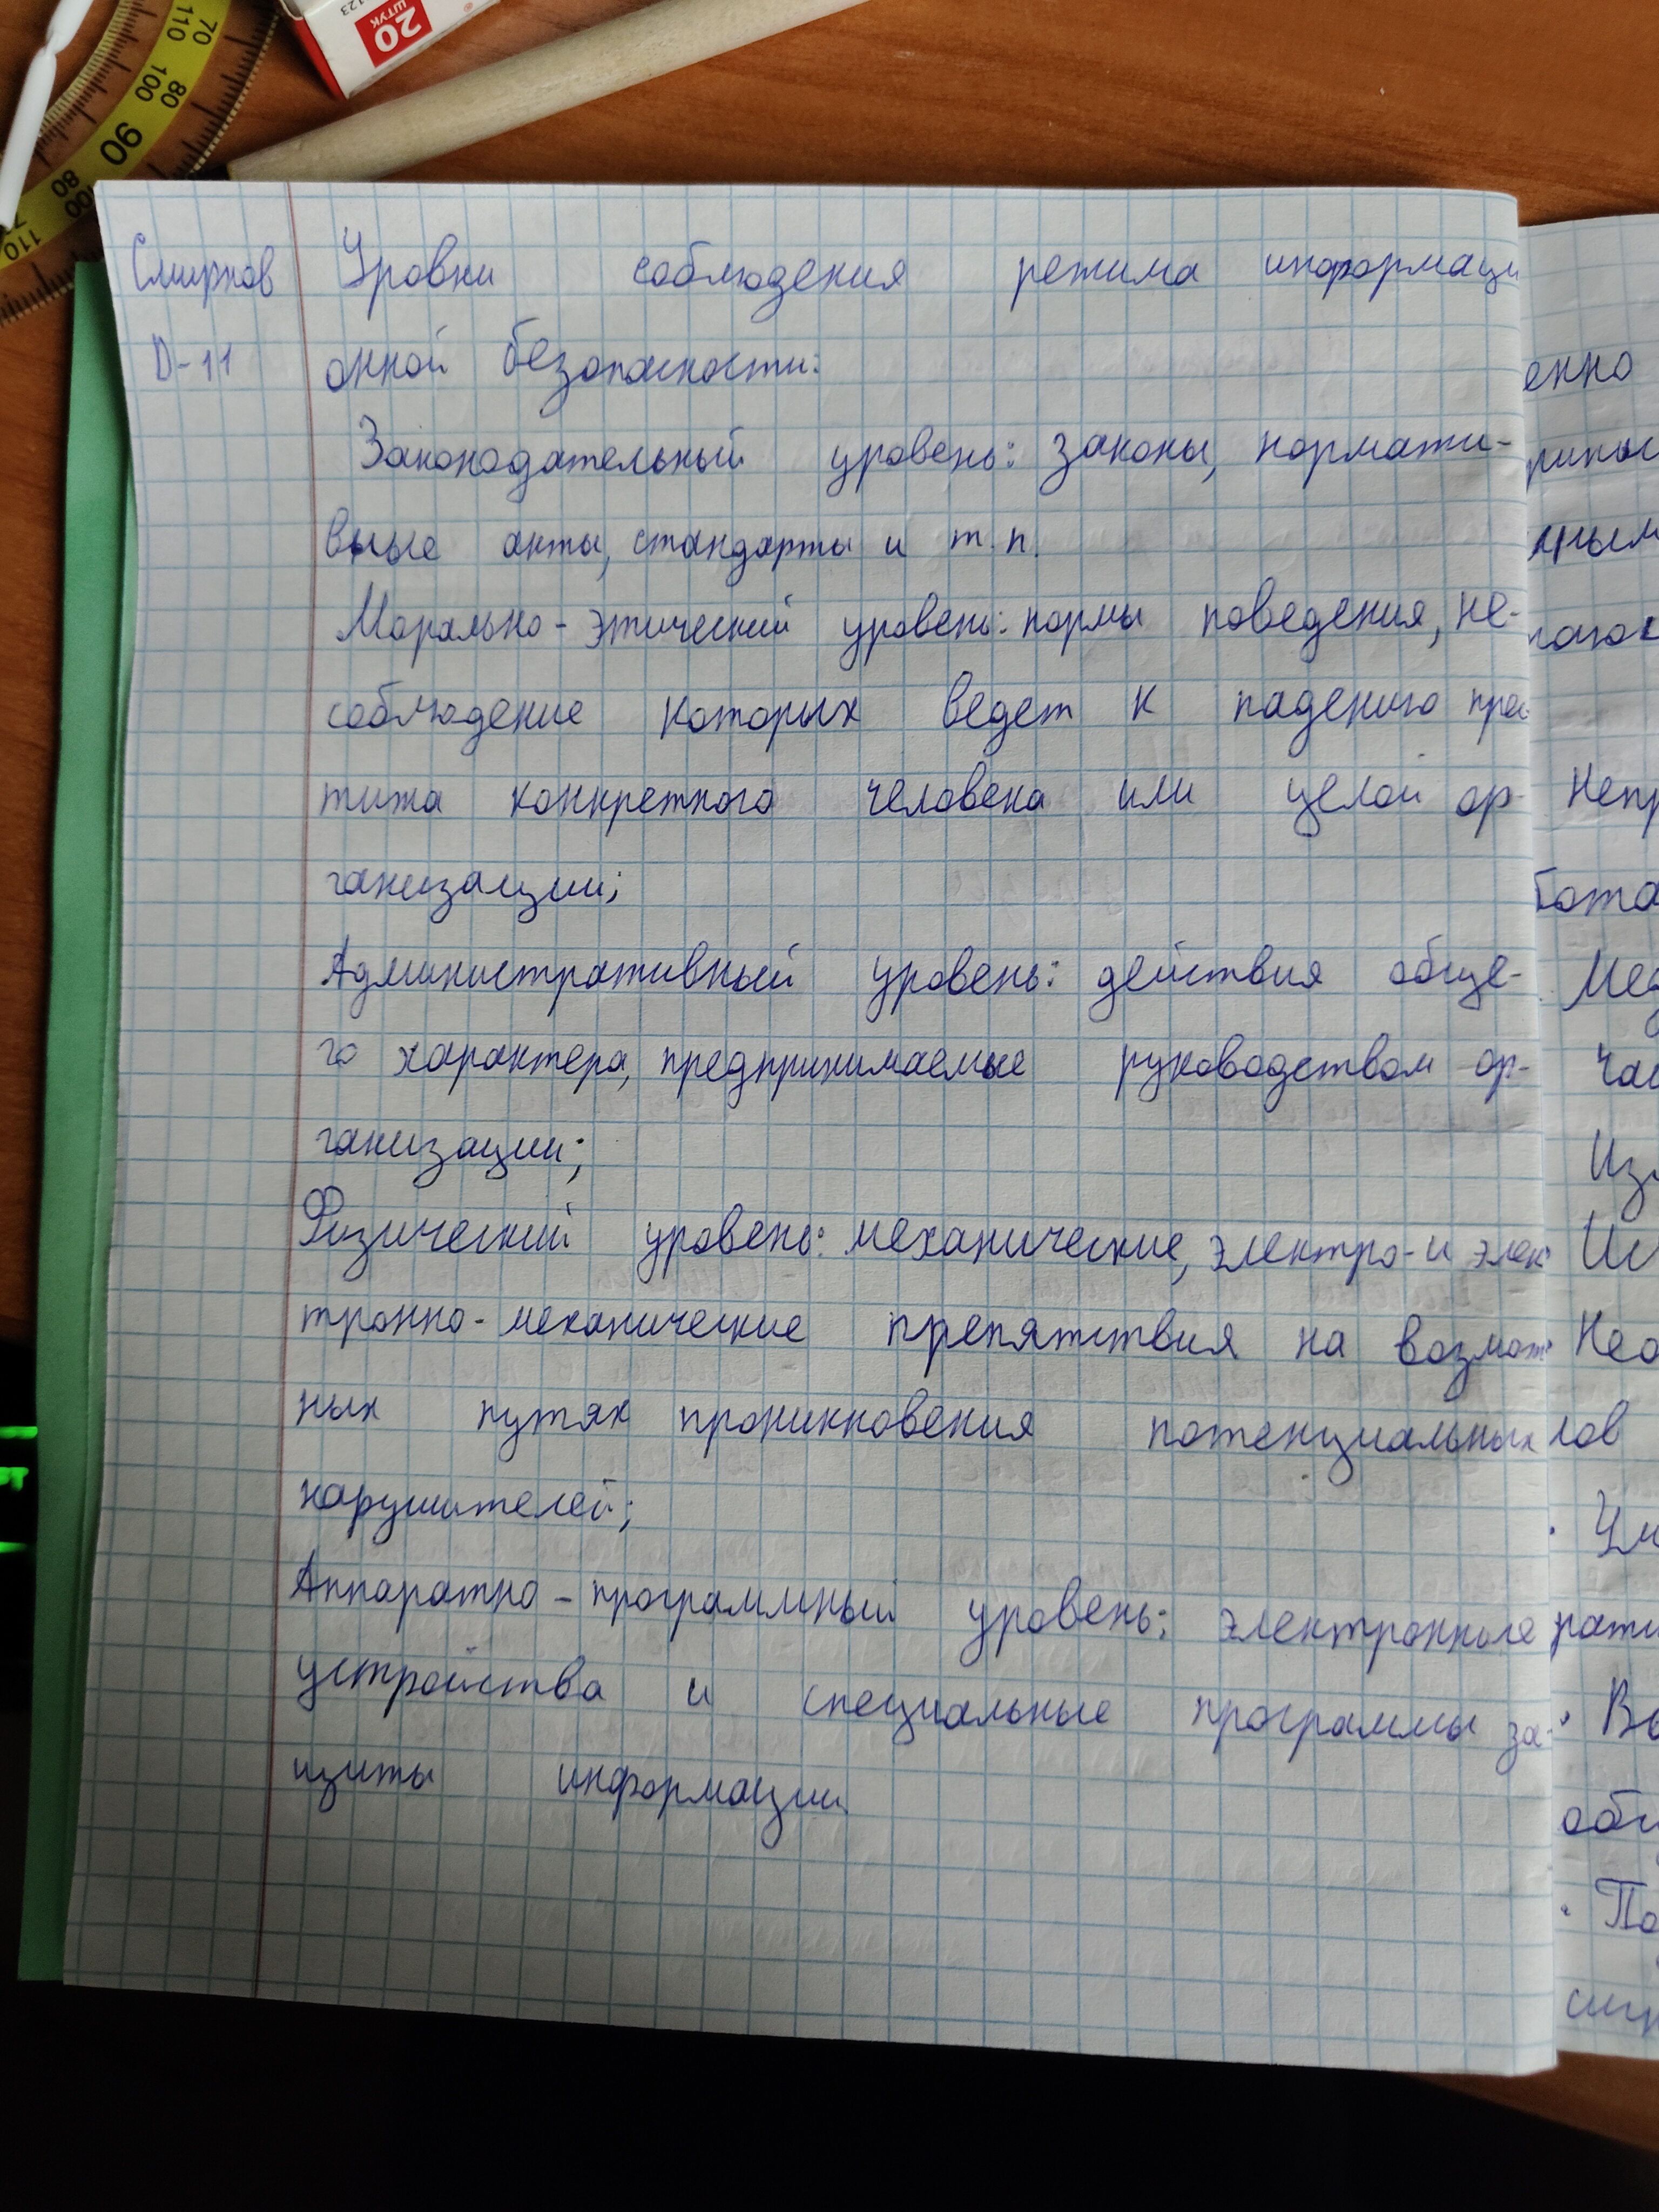 20
ШТУК
123
70
110
80
100
90
80
100
110
Смирнов
D-11
Уровни соблюдения режима информаци
онной безопасности:
Законодательный уровень: законы, нормати-
вные акты, стандарты и т.п.
Морально-этический уровень: нормы поведения, не-
соблюдение которых ведет к падению прес
тижа конкретного человека или целой ор-
ганизации;
Административный уровень: действия обще-
го характера, предпринимаемые руководством ор-
ганизации;
Физический уровень: механические, электро- и элек-
тронно-механические препятствия на возмож-
ных путях проникновения потенциальных
нарушителей;
Аппаратно-программный уровень: электронные
устройства и специальные программы за-
щиты информации
енно
ным
Непр
бота
Мед
Час
Изм
лов
рати
общ